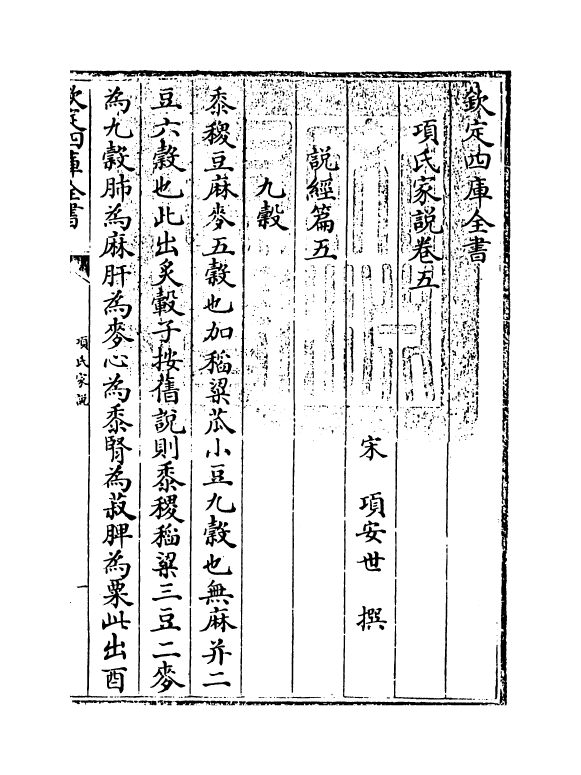 欽定四庫全書
項氏家説卷五
宋 項安世 撰
説經篇五
九穀
黍稷豆麻麥五穀也加稻粱苽小豆九穀也無麻并二
豆六穀也此出炙轂子按舊説則黍稷稻粱三豆二麥
為九穀肺為麻肝為麥心為黍腎為菽脾為粟此出酉
欽定四庫全書
項氏家説
一